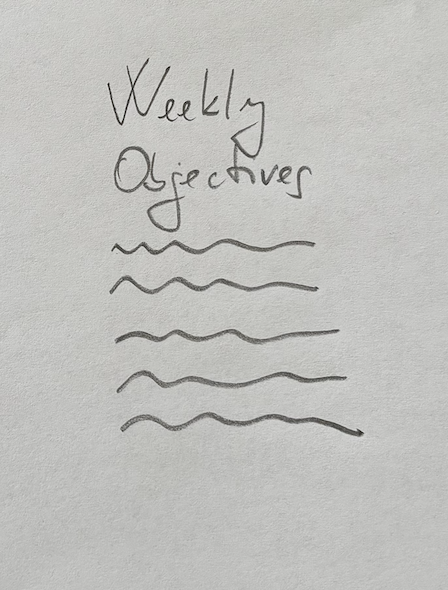 Weekly
Objectives